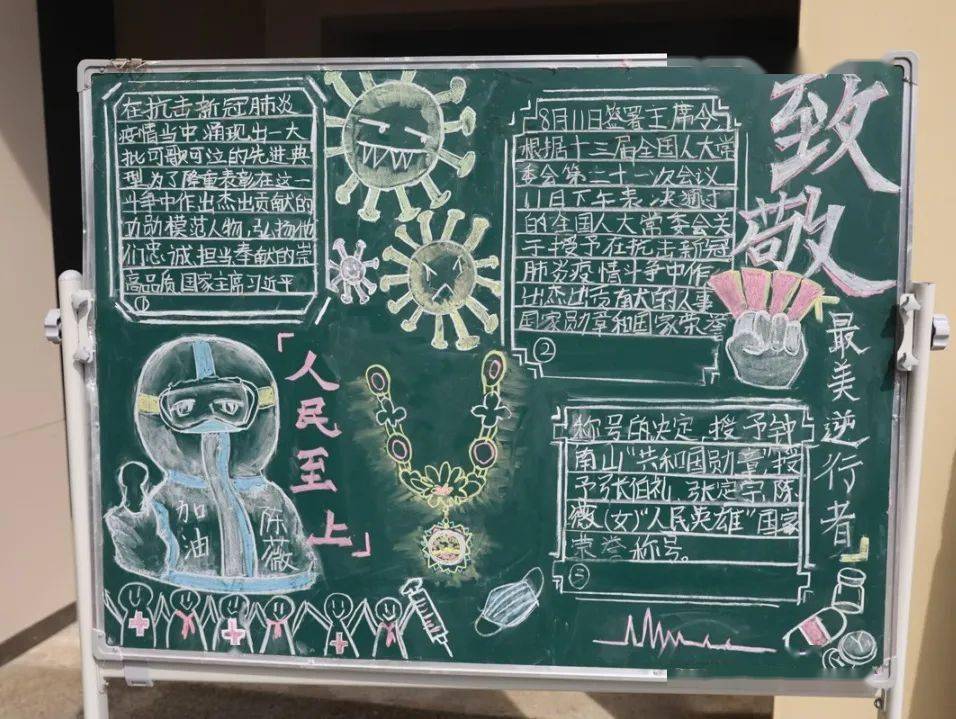 致敬
最美逆行者
在抗击新冠肺炎
疫情当中,涌现出一大
批可歌可泣的先进典
型,为了隆重表彰在这一
斗争中作出杰出贡献的
功勋模范人物,弘扬他
们忠诚,担当奉献的崇
高品质国家主席习近平
①
8月11日签署主席令,
根据十三届全国人大常
委会第二十一次会议
11日下午表决通过
的全国人大常委会关
于授予在抗击新冠
肺炎疫情斗争中作
出杰出贡献的人事
国家勋章和国家荣誉
②
称号的决定,授予钟
南山“共和国勋章”,授
予张伯礼、张定宇、陈
薇(女)“人民英雄”国家
荣誉称号。
③
「人民至上」
加油
陈薇